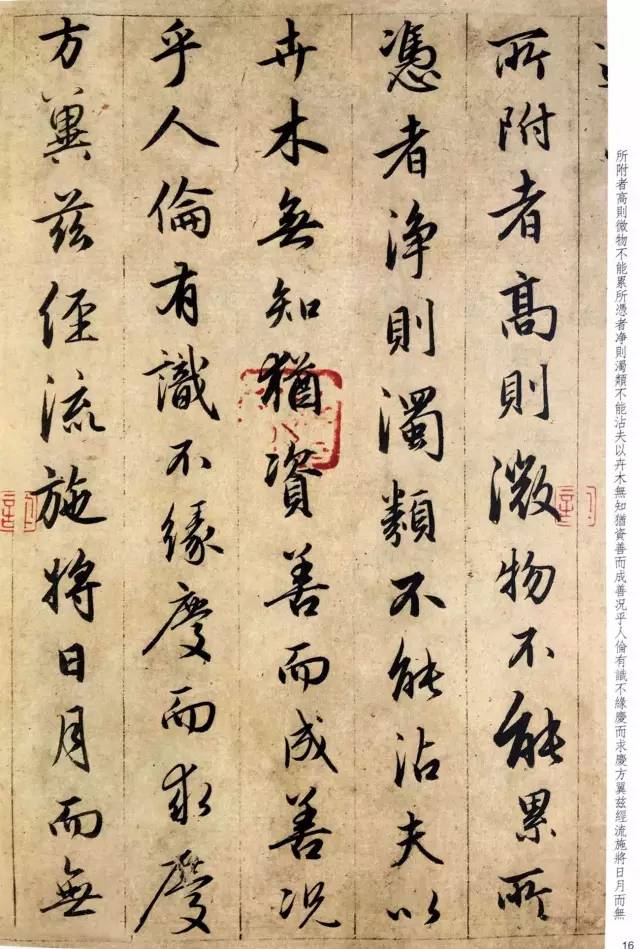 所附者高則微物不能累所
憑者淨則濁類不能沾夫以
卉木無知猶資善而成善況
乎人倫有識不緣慶而求慶
方冀茲經流施將日月而無
所附者高則微物不能累所憑者净則濁類不能沾夫以卉木無知猶資善而成善況乎人倫有識不緣慶而求慶方翼兹經流施將日月而無
16